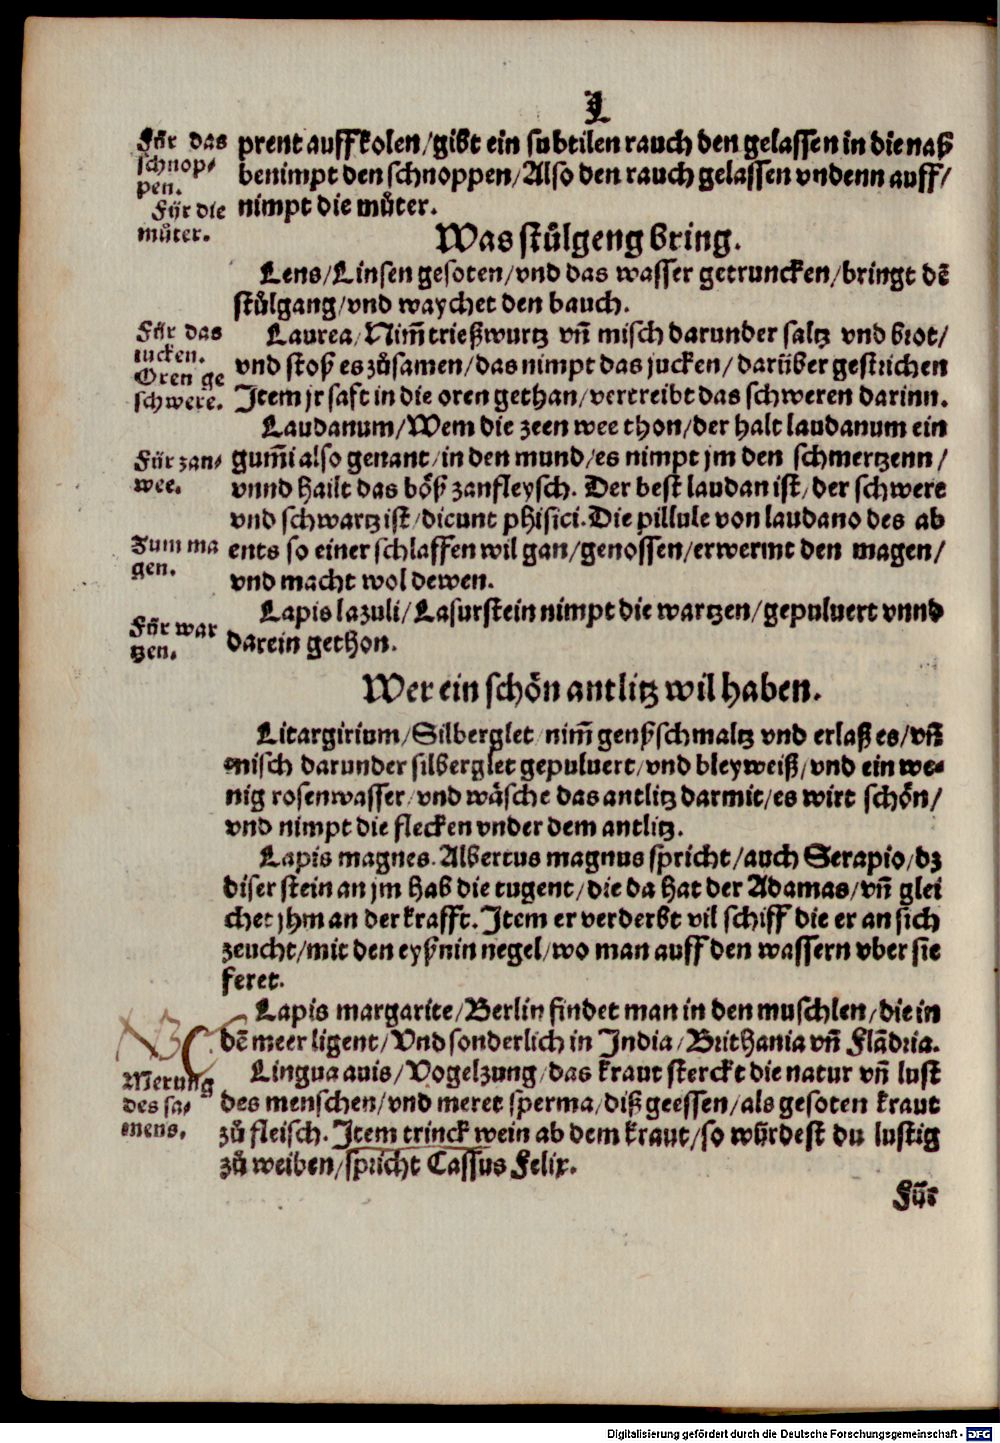 L
Für das
schnop-
pen.
Für die
můter.
prent auff kolen/gibt ein subtilen rauch den gelassen in die naß
benimpt den schnoppen/Also den rauch gelassen vndenn auff/
nimpt die můter.
Was stůlgeng bring.
Lens/Linsen gesoten/vnd das wasser getruncken/bringt dē
stůlgang/vnd waychet den bauch.
Für das
iucken.
Oren ge
schwere.
Laurea/Nim̄ trießwurtz vn̄ misch darunder saltz vnd brot/
vnd stoß es zůsamen/das nimpt das jucken/darüber gestrichen
Item jr saft in die oren gethan/vertreibt das schweren darinn.
Für zan-
wee.
Zum ma
gen.
Laudanum/Wem die zeen wee thon/der halt laudanum ein
gum̄i also genant/in den mund/es nimpt jm den schmertzenn/
vnnd hailt das böß zanfleysch. Der best laudan ist/der schwere
vnd schwartz ist/dicunt phisici. Die pillule von laudano des ab
ents so einer schlaffen wil gan/genossen/erwermt den magen/
vnd macht wol dewen.
Für war
tzen.
Lapis lazuli/Lasurstein nimpt die wartzen/gepuluert vnnd
darein gethon.
Wer ein schön antlitz wil haben.
Litargirium/Silberglet nim̄ genßschmaltz vnd erlaß es/vn̄
misch darunder silberglet gepuluert/vnd bleyweiß/vnd ein we-
nig rosenwasser/vnd wäsche das antlitz darmit/es wirt schön/
vnd nimpt die flecken vnder dem antlitz.
Lapis magnes. Albertus magnus spricht/auch Serapio/dz
diser stein an jm hab die tugent/die da hat der Adamas/vn̄ glei
chet jhm an der krafft. Item er verderbt vil schiff die er an sich
zeucht/mit den eyßnin negel/wo man auff den wassern vber sie
feret.
Lapis margarite/Berlin findet man in den muschlen/die in
dē meer ligent/Vnd sonderlich in India/Brithania vn̄ Flādria.
NB
Merung
des sa-
mens.
Lingua auis/Vogelzung/das kraut sterckt die natur vn̄ lust
des menschen/vnd meret sperma/diß geessen/als gesoten kraut
zů fleisch. Item trinck wein ab dem kraut/so würdest du lustig
zů weiben/spricht Cassus Felix.
Für
Digitalisierung gefördert durch die Deutsche Forschungsgemeinschaft - DFG